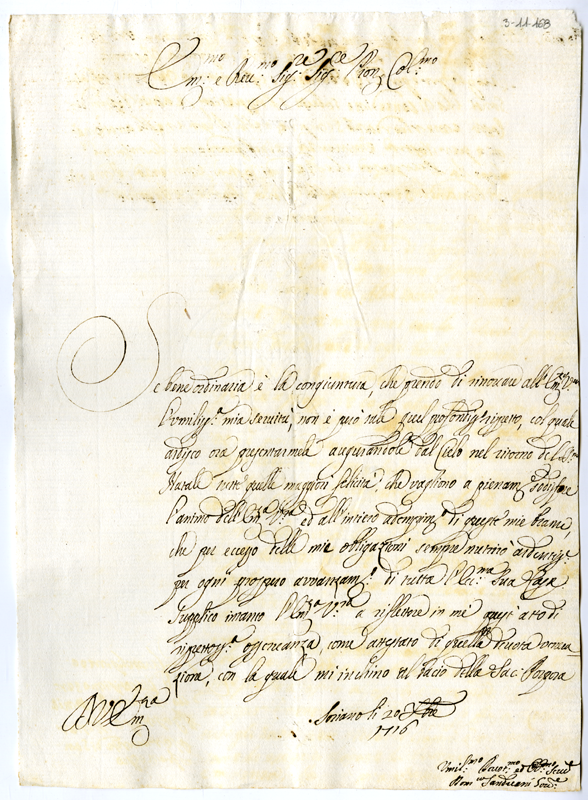 3-11-168
Em:mo e Reu:mo Sig:re Sig:re Pron: Col:mo
Se bene ordinaria è la congiuntura, che prendo di rinovare all'Em:za V:ra
l'umiliss:a mia servitù, non è però tale quel profondiss:o rispetto, col quale
ardisco ora presentarmele augurandole dal Cielo nel ritorno del
Natale tutte quelle maggiori felicità, che vagliono a pienam:te sodisfare
l'animo dell'Em:za V:ra ed all'intiero adempim:to di queste mie brame,
che per eccesso delle mie obligazioni sempre nutrirò
per ogni prospero avvanzam:to di tutta l'Ecc:ma Sua Casa
supplico intanto l'Em:za V:ra a riflettere in me quest'atto di
rispettos:a osservanza, come attestato di quella devota
zione, con la quale mi inchino al bacio della Sac: Porpora
Di V:ra Em:za
Soriano li 20 Xbre
1716
Umil:mo Devot:mo ed Ob:mo